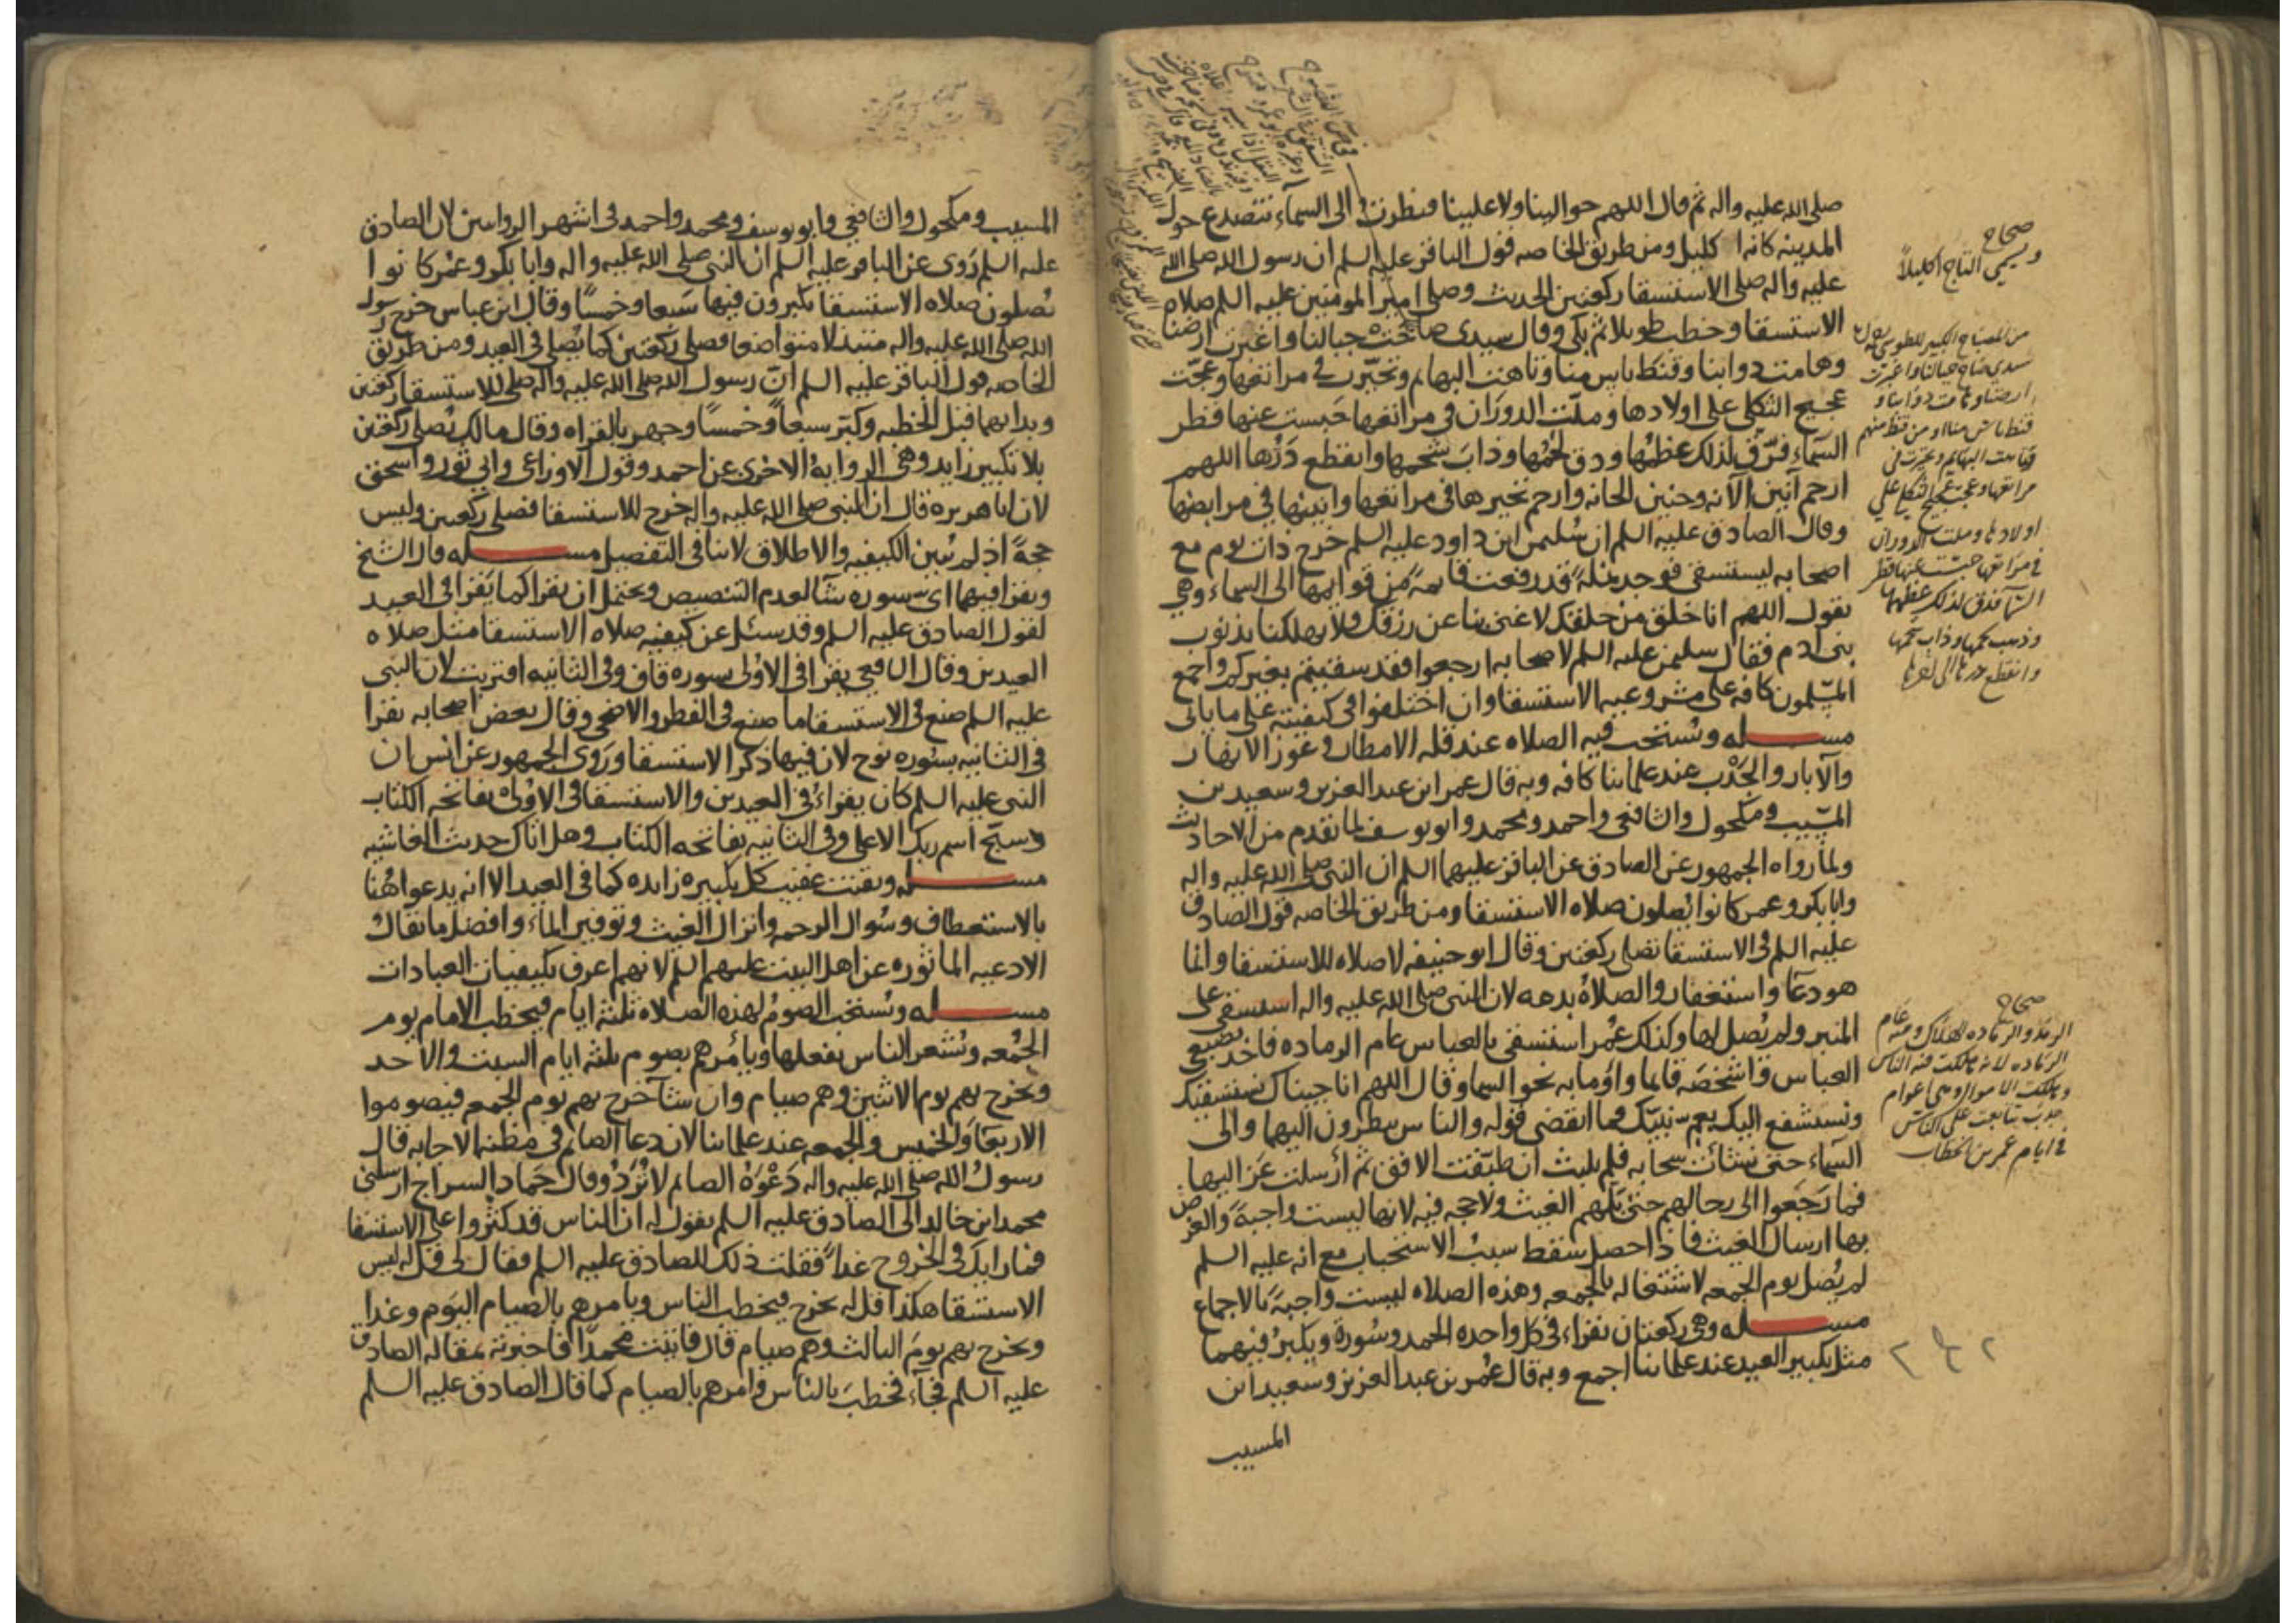 صلى الله عليه واله ثم قال اللهم حوالينا ولا علينا فنظرت الى السمآء تتصدع حول
المدينه كانه اكليل ومن طريق الخاصه قول الباقر عليه السلم ان رسول الله صلى الله
عليه واله صلى الاستسقا ركعتين الحديث وصلى امير المومنين عليه السلم صلاه
الاستسقا وخطب طويلا ثم بكى وقال سيدى صاحت جبالنا واغبرت ارضنا
وهامت دوابنا وقنط ناس منا وتاهت البهايم وتحيرت فى مراتعها وعجّت
عجيج الثكلى على اولادها وملّت الدوران فى مراتعها حبست عنها قطر
السمآء فرقّ لذلك عظمُها ودق لحمُها وذابَ شحمها وانقطع دَرّها اللهم
ارحم انين الآنه وحنين الحانه وارحم تحيرها فى مراتعها وانينها فى مرابضها
وقال الصادق عليه السلم ان سُليمن ابن داود عليه السلم خرج ذات يوم مع
اصحابه ليستسقى فوجد نملةً قد رفعت قايمةً من قوايمها الى السماء وهى
تقول اللهم انا خلق من خلقك لا غنى بنا عن رزقك ولا تهلكنا بذنوب
بنى ادم فقال سليمن عليه السلم لاصحابه ارجعوا فقد سقيتم بغيركم واجمع
المسلمون كافه على مشروعيه الاستسقا وان اختلفوا فى كيفيته على ما ياتى
مســــله وتستحب فيه الصلاه عند قله الامطار وغوز الانهار
والآبار والجَدْب عند علمائنا كافه وبه قال عمر ابن عبد العزيز وسعيد بن
المسيب ومكحول والشافعى واحمد ومحمد وابو يوسف لما تقدم من الاحاديث
ولما رواه الجمهور عن الصادق عن الباقر عليهما السلم ان النبى صلى الله عليه واله
وابا بكر وعمر كانوا يُصلون صلاه الاستسقا ومن طريق الخاصه قول الصادق
عليه السلم فى الاستسقا تصلى ركعتين وقال ابو حنيفه لا صلاه للاستسقا وانما
هو دعآ واستغفار والصلاة بدعه لان النبى صلى الله عليه واله استسقى على
المنبر ولم يُصل لها وكذلك عُمر استسقى بالعباس عام الرماده فاخذ بضبع
العباس واشخصَه قايما واومأ به نحو السما وقال اللهم انا جيناك نستسقيك
ونستشفع اليك بعم نبيّك فما انقضى قوله والناس ينظرون اليهما والى
السمآء حتى نشأت سحابه فلم يلبث ان طبّقت الافق ثم ارسلت عَزاليها
فما رَجَعوا الى رحالهم حتى بلّهم الغيث ولا حجه فيه لانها ليست واجبةً والغرض
بها ارسال الغيث فاذا حصل سَقط سبب الاستحباب مع انه عليه السلم
لم يُصل يوم الجمعه لاشتغاله بالجمعه وهذه الصلاه ليست واجبهً بالاجماع
مســــله وهى ركعتان يقراء فى كل واحده الحمد وسُورة ويكبرُ فيهما
مثل تكبير العيد عند علمائنا اجمع وبه قال عُمر بن عبد العزيز وسعيد ابن
المسيب
صحاح
ويسمى التاج اكليلاً
من المصباح الكبير للطوسى
سيدى صاح جبالنا واغبرت
ارضنا وهامت دوابنا و
قنط ناس منا او من قنط منهم
وتاهت البهايم وتحيرت فى
مراتعها وعجت عجيج الثكلى على
اولادها وملت الدوران
فى مراتعها حبست عنها قطر
السما فدق لذلك عظمها
وذهب لحمها وذاب شحمها
وانقطع درها الى اخرها
صحاح
الرمد والرماده الهلاك ومنه عام
الرماده لانه هلكت فيه الناس
وهلكت الاموال وهى اعوام
جدب تتابعت على الناس
فى ايام عمر بن الخطاب
المسيب ومكحول والشافعى وابو يوسف ومحمد واحمد فى اشهر الروايتين لان الصادق
عليه السلم رَوى عن الباقر عليه السلم ان النبى صلى الله عليه واله وابا بكر وعمر كانوا
يُصلون صلاه الاستسقا يكبرون فيها سَبعا وخمسًا وقال ابن عباس خرج رسول
الله صلى الله عليه واله متبذلا متواضعا فصلى ركعتين كما يُصلى فى العيد ومن طريق
الخاصه قول الباقر عليه السلم انّ رسول الله صلى الله عليه واله صلى للاستسقا ركعتين
وبدا بهما قبل الخطبه وكبّر سبعاً وخمسًا وجهر بالقراه وقال مالك يُصلى ركعتين
بلا تكبير زايد وهى الروايهُ الاخرى عن احمد وقول الاوزاعى وابى ثور واسحق
لان ابا هريره قال ان النبى صلى الله عليه واله خرج للاستسقا فصلى ركعتين وليس
حجةً اذ لم يُبين الكيفيه والاطلاق لا ينافى التفصيل مســــله قال الشيخ
ويقرا فيهما اى سوره شآ لعدم التنصيص ويحتمل ان يقرا كما يَقرا فى العيد
لقول الصادق عليه السلم وقد سئل عن كيفيه صلاه الاستسقا مثل صلاه
العيدين وقال الشافعى يقرا فى الاولى سوره قاف وفى الثانيه اقتربت لان النبى
عليه السلم صنع فى الاستسقا ما صنع فى الفطر والاضحى وقال بعض اصحابه يقرا
فى الثانيه بسُوره نوح لان فيها ذكر الاستسقا ورَوى الجمهور عن انس ان
النبى عليه السلم كان يقراءُ فى العيدين والاستسقا فى الاولى بفاتحه الكتاب
وسبّح اسم ربك الاعلى وفى الثانيه بفاتحه الكتاب وهل اتاك حديث الغاشيه
مســــله ويقنت عقيب كل تكبيره زايده كما فى العيد الا انه يدعوا هُنا
بالاستعطاف وسُوال الرحمه وانزال الغيث وتوفير الماء وافضل ما يقال
الادعيه الماثوره عن اهل البيت عليهم السلم لانهم اعرف بكيفيات العبادات
مســــله ويُستحب الصومُ لهذه الصلاه ثلثه ايام فيخطب الامام يوم
الجُمعه ويُشعر الناس بفعلها ويأمُرهم بصوم ثلثه ايام السبت والاحد
ويخرج بهم يوم الاثنين وهم صيام وان شآ خرج بهم يوم الجمعه فيصوموا
الاربعا والخميس والجمعه عند علمائنا لان دعآ الصايم فى مظنه الاجابه قال
رسولُ الله صلى الله عليه واله دَعْوَة الصايم لا تُرَدُ وقال حَماد السراج ارسلنى
محمد ابن خالد الى الصادق عليه السلم يقول له ان الناس قد كثروا على الاستسقا
فما رايك فى الخروج غداً فقلت ذلك للصادق عليه السلم فقال لى قل له ليس
الاستسقا هكذا قل له يخرج فيخطب الناس ويامرهم بالصيام اليَوم وغدا
ويخرج بهم يومَ الثالث وهم صيام قال فاتيت محمدًا فاخبرته بمقاله الصادق
عليه السلم فجآء فخطبَ بالناس وامرهم بالصيام كما قال الصادق عليه السلم